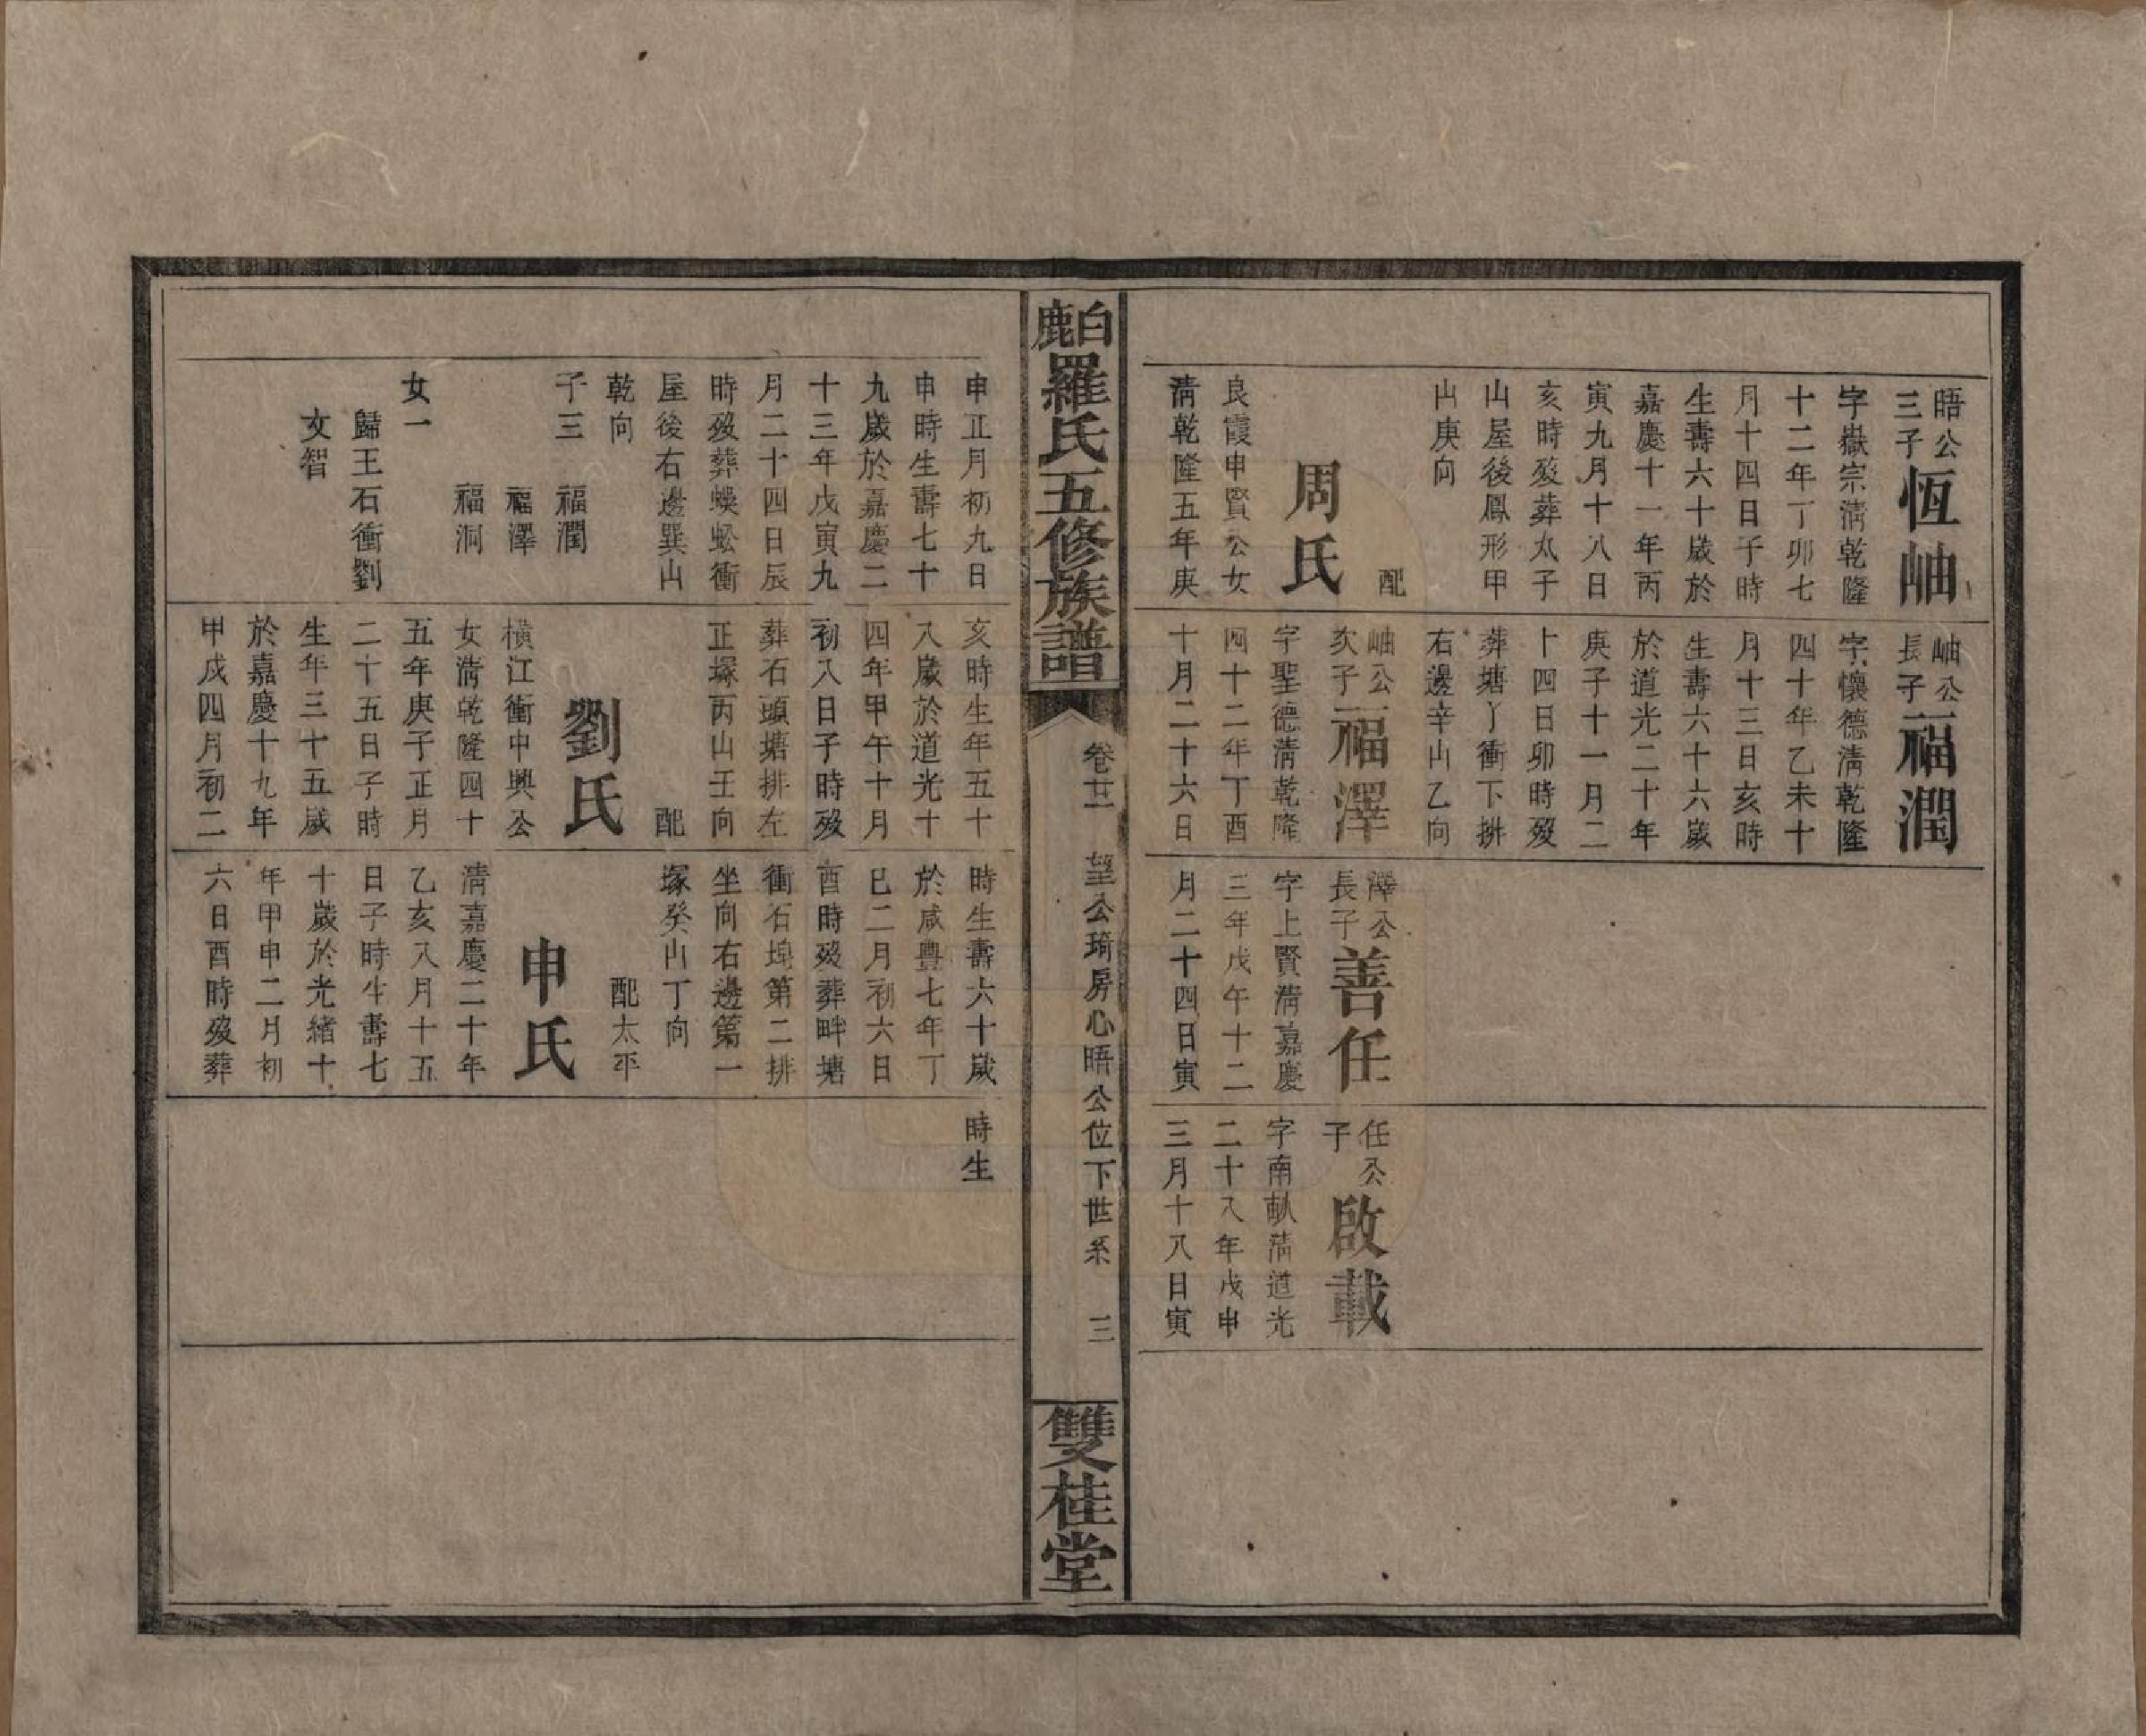 晤公
三子
恆岫
字嶽宗淸乾隆
十二年丁卯七
月十四日子時
生壽六十歲於
嘉慶十一年丙
寅九月十八日
亥時歿葬太子
山屋後鳳形甲
山庚向
配
周氏
良霞申賢公女
淸乾隆五年庚
岫公
長子
福潤
字懷德淸乾隆
四十年乙未十
月十三日亥時
生壽六十六歲
於道光二十年
庚子十一月二
十四日卯時歿
葬塘丫衝下排
右邊辛山乙向
岫公
次子
福澤
字聖德淸乾隆
四十二年丁酉
十月二十六日
澤公
長子
善任
字上賢淸嘉慶
三年戊午十二
月二十四日寅
任公
子
啟載
字南畝淸道光
二十八年戊申
三月十八日寅
白鹿羅氏五修族譜
卷廿一 望公琦房心晤公位下世系 三
雙桂堂
申正月初九日
申時生壽七十
九歲於嘉慶二
十三年戊寅九
月二十四日辰
時歿葬蜈蚣衝
屋後右邊巽山
乾向
子三 福潤
福澤
福洞
女一
歸王石衝劉
文智
亥時生年五十
八歲於道光十
四年甲午十月
初八日子時歿
葬石頭塘排左
正塚丙山壬向
配
劉氏
橫江衝中興公
女淸乾隆四十
五年庚子正月
二十五日子時
生年三十五歲
於嘉慶十九年
甲戌四月初二
時生壽六十歲
於咸豐七年丁
巳二月初六日
酉時歿葬畔塘
衝石塊第二排
坐向右邊第一
塚癸山丁向
配太平
申氏
淸嘉慶二十年
乙亥八月十五
日子時生壽七
十歲於光緖十
年甲申二月初
六日酉時歿葬
時生